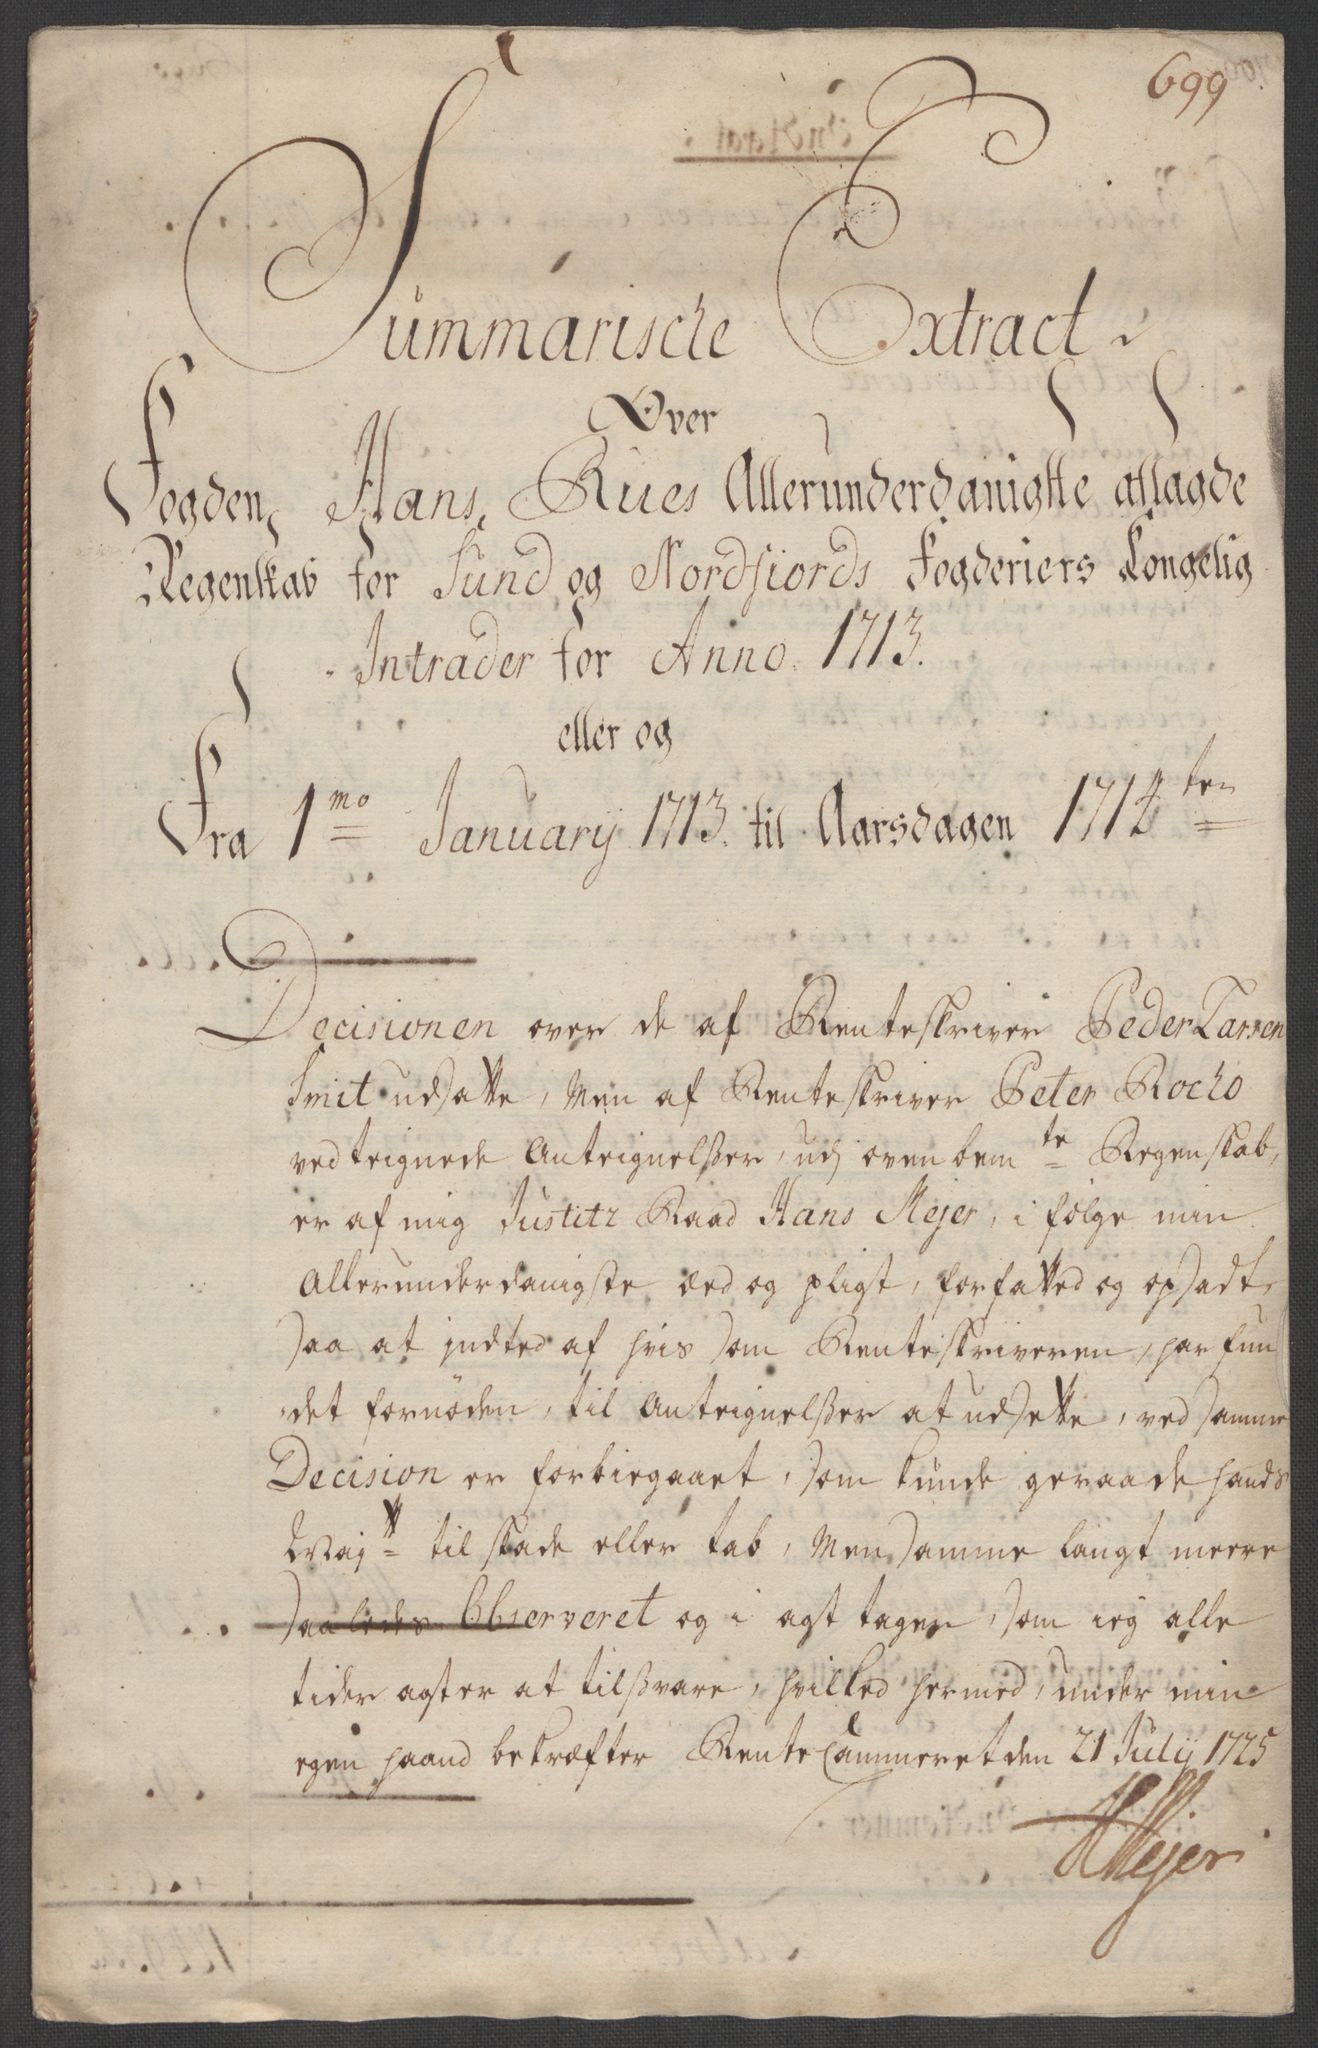 699
Summarische Extract
Over
Fogden Hans Rues Allerunderdanigste aflagde
Regenskab for Sund og Nordfiords Fogderiers Kongelig
Intrader for Anno 1713.
eller og
Fra 1mo January 1713. til Aarsdagen 1714ten
Decisionen over de af Renteskriver Peder Larsen
Smit udsatte, Men af Renteskriver Peter Rocho
vedteignede Anteignelßer, udj ovenbemte Regenskab,
er af mig Justitz Raad Hans Mejer, i følge min
Allerunderdanigste Eed og pligt, forfatted og opsadt,
saa at indted af hvis som Renteskriveren, har fun
det fornøden, til Anteignelßer at udsette, ved samme
Decision er forbiegaaet, som kunde geraade hands
Majtt til skade eller tab, Men samme langt meere
saaledes Observeret og i agt tagen, som ieg alle
tider agter at tilßvare, hvilked hermed, under min
egen haand bekræfter RenteCammeret den 21 Julij 1725
HMejer